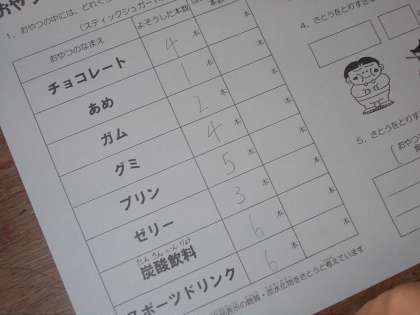 おやつ
1. おやつの中には、どれく
(スティックシュガー
おやつのなまえ よそうした本数
チョコレート 4本 本
あめ 1本 本
ガム 2本 本
グミ 4本 本
プリン 5本 本
ゼリー 3本 本
たんさんいんりょう
炭酸飲料 6本 本
スポーツドリンク 6本 本
炭水化物をさとうと考えています
4. さとうをとりす
5. さとうをとりす
(おや